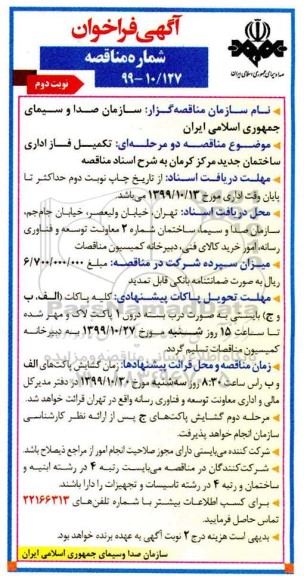 آگهی فراخوان
شماره مناقصه
۹۹-۱۰/۱۲۷
نوبت دوم
صدا و سیمای جمهوری اسلامی ایران
نام سازمان مناقصه‌گزار: سازمان صدا و سیمای
جمهوری اسلامی ایران
موضوع مناقصه دو مرحله‌ای: تکمیل فاز اداری
ساختمان جدید مرکز کرمان به شرح اسناد مناقصه
مهلت دریافت اسناد: از تاریخ چاپ نوبت دوم حداکثر تا
پایان وقت اداری مورخ ۱۳۹۹/۱۰/۱۳ می‌باشد.
محل دریافت اسناد: تهران، خیابان ولیعصر، خیابان جام‌جم،
سازمان صدا و سیما، ساختمان شماره ۲ معاونت توسعه و فناوری
رسانه، امور خرید کالای فنی، دبیرخانه کمیسیون مناقصات
میزان سپرده شرکت در مناقصه: مبلغ ۶/۷۰۰/۰۰۰/۰۰۰
ریال به صورت ضمانتنامه بانکی قابل تمدید
مهلت تحویل پاکات پیشنهادی: کلیه پاکات (الف، ب
و ج) بایستی به صورت در بسته درون ۱ پاکت لاک و مهر شده
تا ساعت ۱۵ روز شنبه مورخ ۱۳۹۹/۱۰/۲۷ به دبیرخانه
کمیسیون مناقصات تسلیم گردد.
زمان مناقصه و محل قرائت پیشنهادها: زمان گشایش پاکت‌های الف
و ب راس ساعت ۸:۳۰ روز سه‌شنبه مورخ ۱۳۹۹/۱۰/۳۰ در دفتر مدیرکل
مالی و اداری معاونت توسعه و فناوری رسانه واقع در تهران قرائت خواهد شد.
مرحله دوم گشایش پاکت‌های ج پس از ارائه نظر کارشناسی
سازمان انجام خواهد پذیرفت.
شرکت کننده می‌بایستی دارای مجوز صلاحیت انجام امور از مراجع ذیصلاح باشد.
شرکت‌کنندگان در مناقصه می‌بایست رتبه ۴ در رشته ابنیه و
ساختمان و رتبه ۴ در رشته تاسیسات و تجهیزات را دارا باشند.
برای کسب اطلاعات بیشتر با شماره تلفن‌های ۲۲۱۶۶۳۱۳
تماس حاصل فرمایید.
بدیهی است هزینه درج ۲ نوبت آگهی به عهده برنده خواهد بود.
سازمان صدا وسیمای جمهوری اسلامی ایران